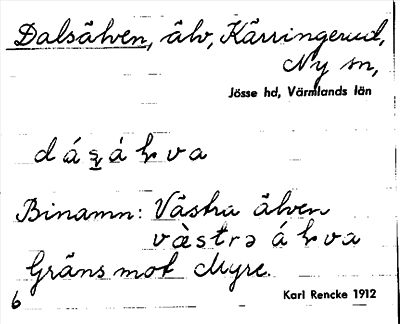 Dalsälven, älv, Kärringerud,
Ny sn,
Jösse hd, Värmlands län
Binamn: Västra älven
Gräns mot Myre.
6
Karl Rencke 1912